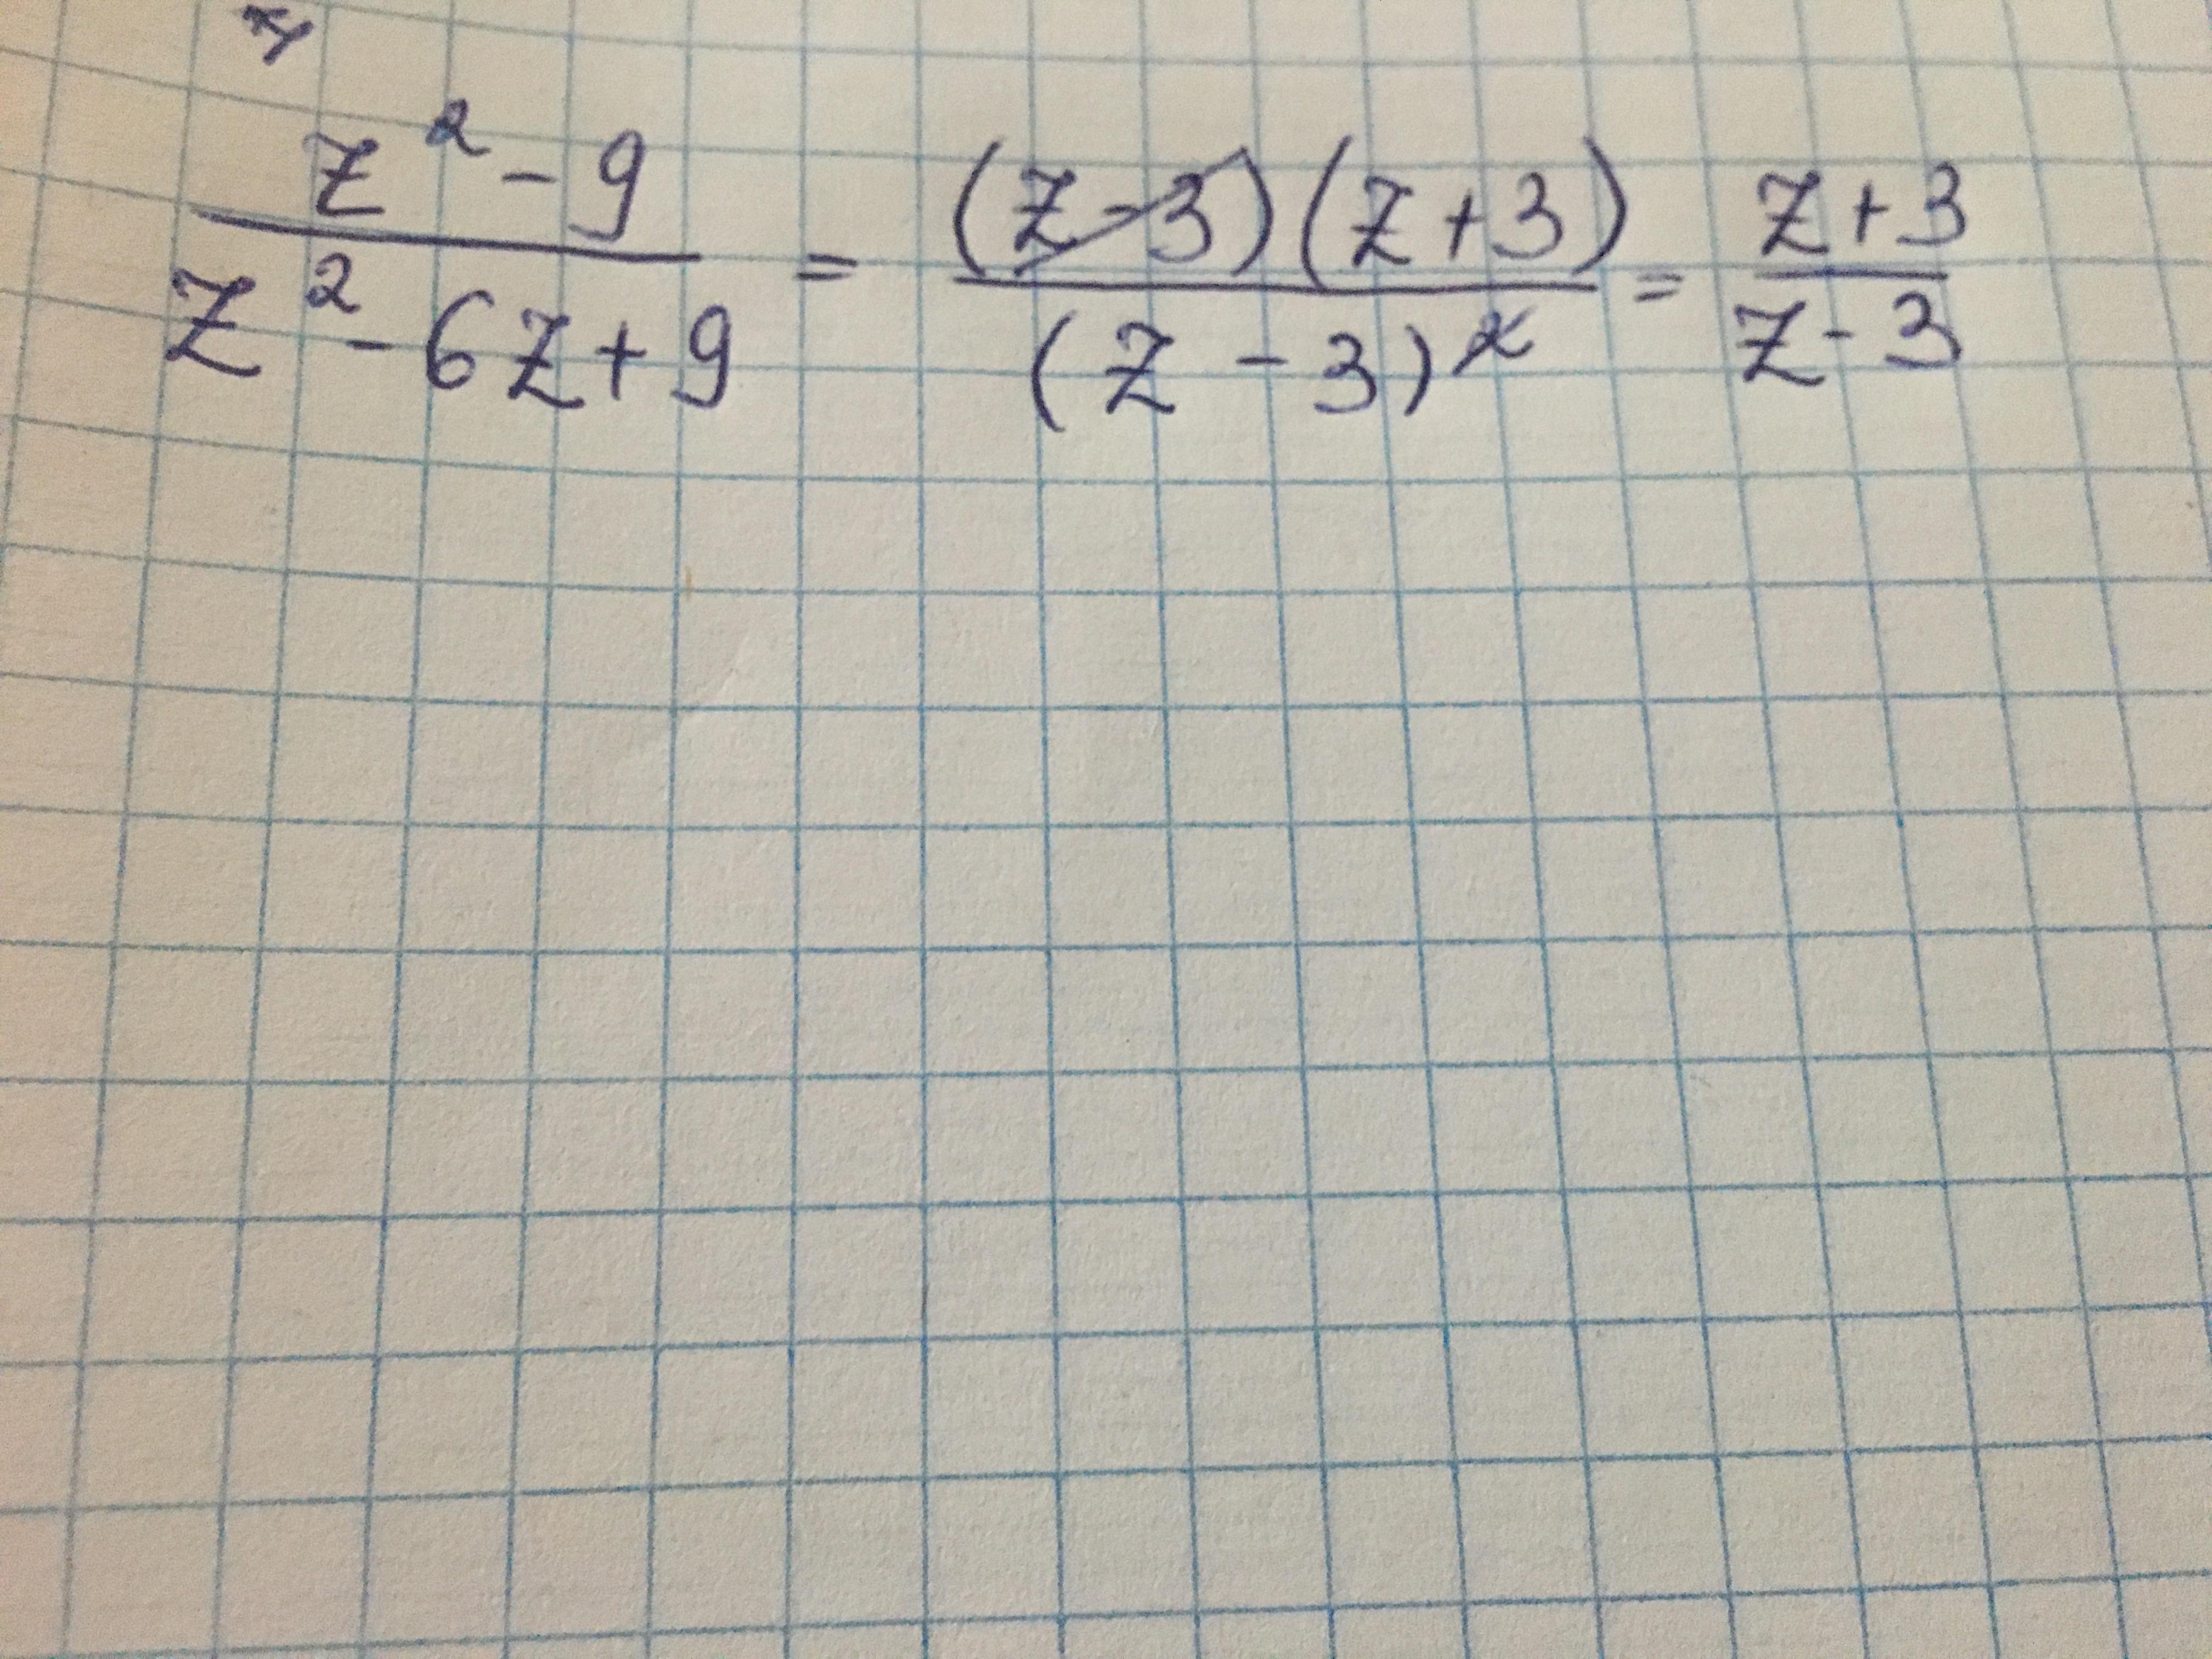 z² - 9 / z² - 6z + 9 = (z-3)(z+3) / (z - 3)² = z+3 / z-3